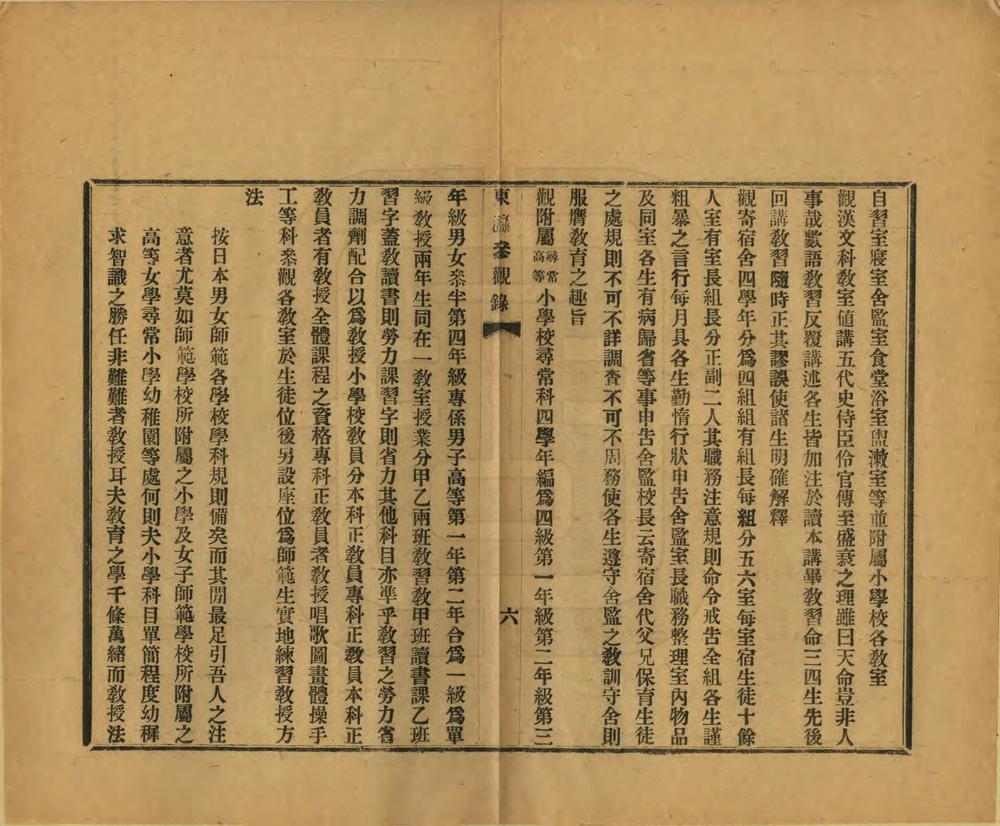 自習室寢室舍監室食堂浴室盥漱室等並附屬小學校各教室
觀漢文科教室値講五代史侍臣伶官傳至盛衰之理雖曰天命豈非人
事哉數語教習反覆講述各生皆加注於讀本講畢教習命三四生先後
回講教習隨時正其謬誤使諸生明確解釋
觀寄宿舍四學年分爲四組組有組長每組分五六室每室宿生徒十餘
人室有室長組長分正副二人其職務注意規則命令戒告全組各生謹
粗暴之言行每月具各生勤惰行狀申告舍監室長職務整理室內物品
及同室各生有病歸省等事申告舍監校長云寄宿舍代父兄保育生徒
之處規則不可不詳調查不可不周務使各生遵守舍監之教訓守舍則
服膺教育之趣旨
觀附屬尋常高等小學校尋常科四學年編爲四級第一年級第二年級第三
東瀛參觀錄
六
年級男女叅半第四年級專係男子高等第一年第二年合爲一級爲單
級教授兩年生同在一教室授業分甲乙兩班教習教甲班讀書課乙班
習字蓋教讀書則勞力課習字則省力其他科目亦準乎教習之勞力省
力調劑配合以爲教授小學校教員分本科正教員專科正教員本科正
教員者有教授全體課程之資格專科正教員者教授唱歌圖畫體操手
工等科叅觀各教室於生徒位後另設座位爲師範生實地練習教授方
法
按日本男女師範各學校學科規則備矣而其間最足引吾人之注
意者尤莫如師範學校所附屬之小學及女子師範學校所附屬之
高等女學尋常小學幼稚園等處何則夫小學科目單簡程度幼穉
求智識之勝任非難難者教授耳夫教育之學千條萬緒而教授法